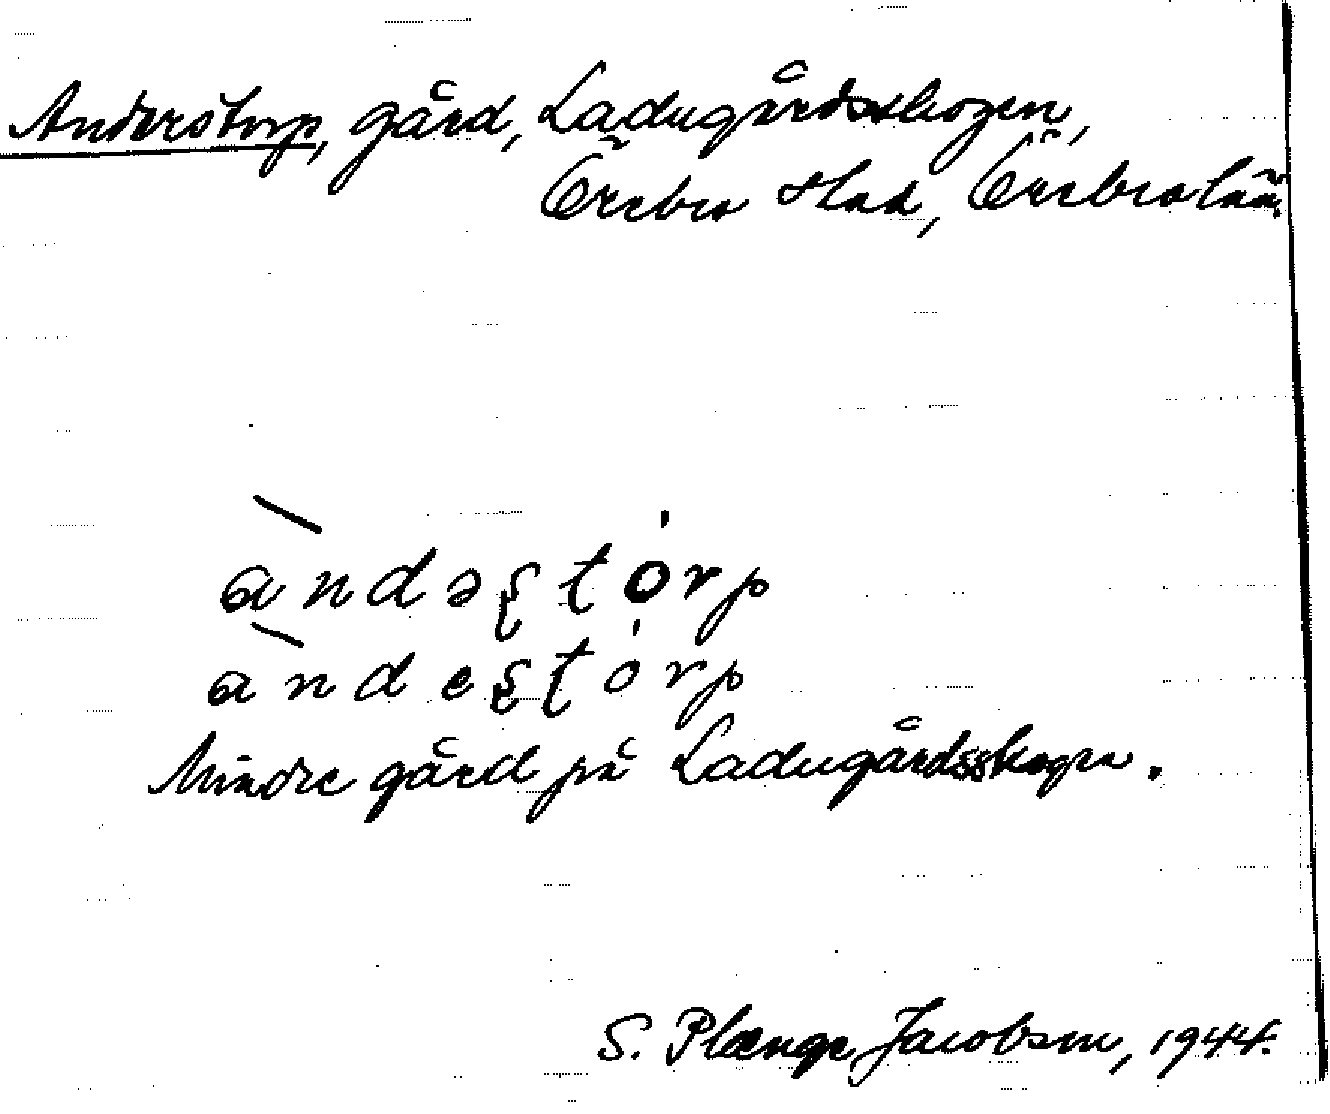 Anderstorp, gård, Ladugårdsskogen,
Örebro stad, Örebro län.
àndəʂʈórp
àndeʂʈórp
Mindre gård på Ladugårdsskogen.
S. Plænge Jacobson, 1944.